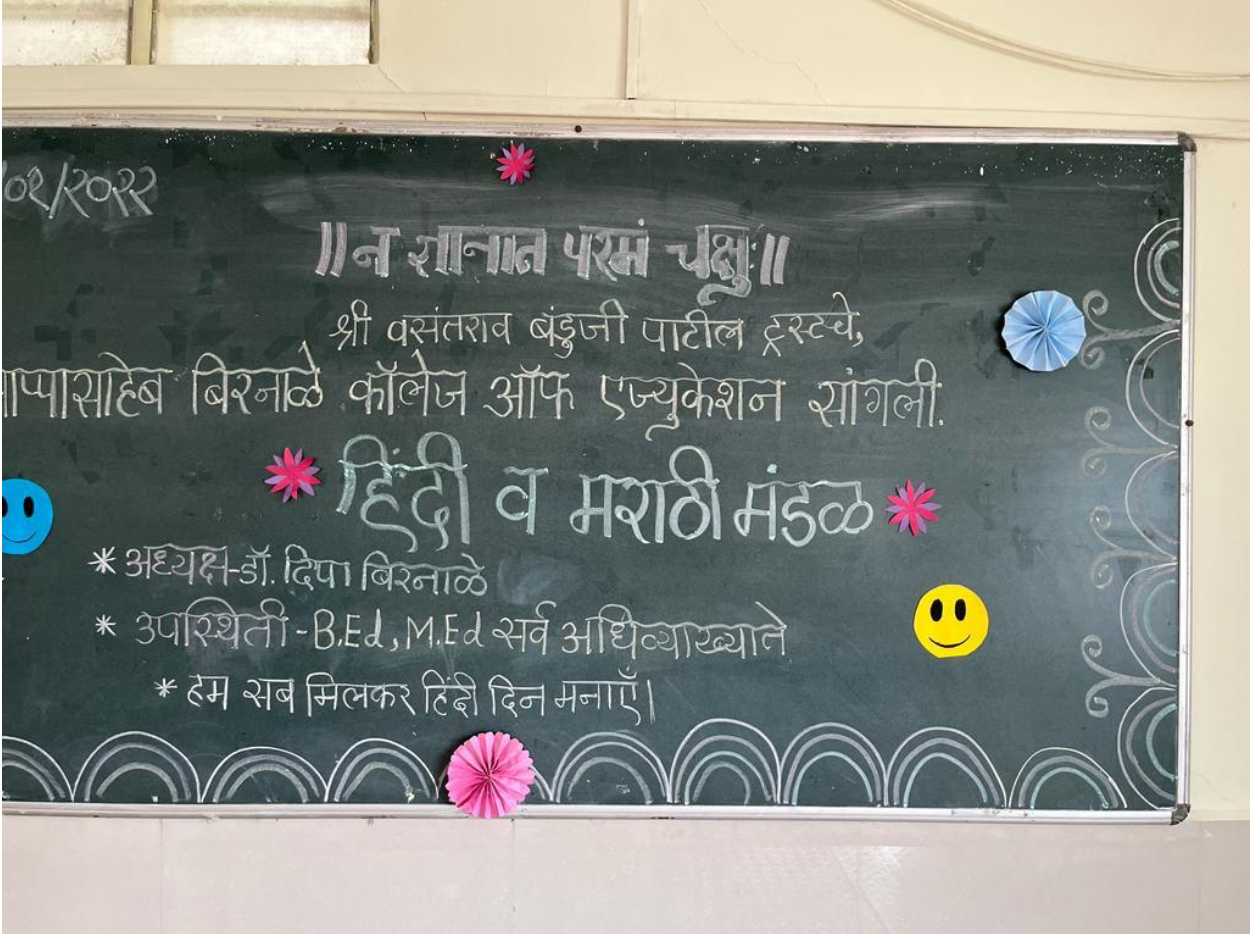 /०२/२०२२
॥ न ज्ञानात परमं चक्षुः ॥
श्री वसंतराव बंडुजी पाटील ट्रस्टचे,
ाप्पासाहेब बिरनाळे कॉलेज ऑफ एज्युकेशन सांगली.
हिंदी व मराठी मंडळ
* अध्यक्ष-डॉ. दिपा बिरनाळे
* उपस्थिती - B.Ed, M.Ed सर्व अधिव्याख्याते
* हम सब मिलकर हिंदी दिन मनाएँ।